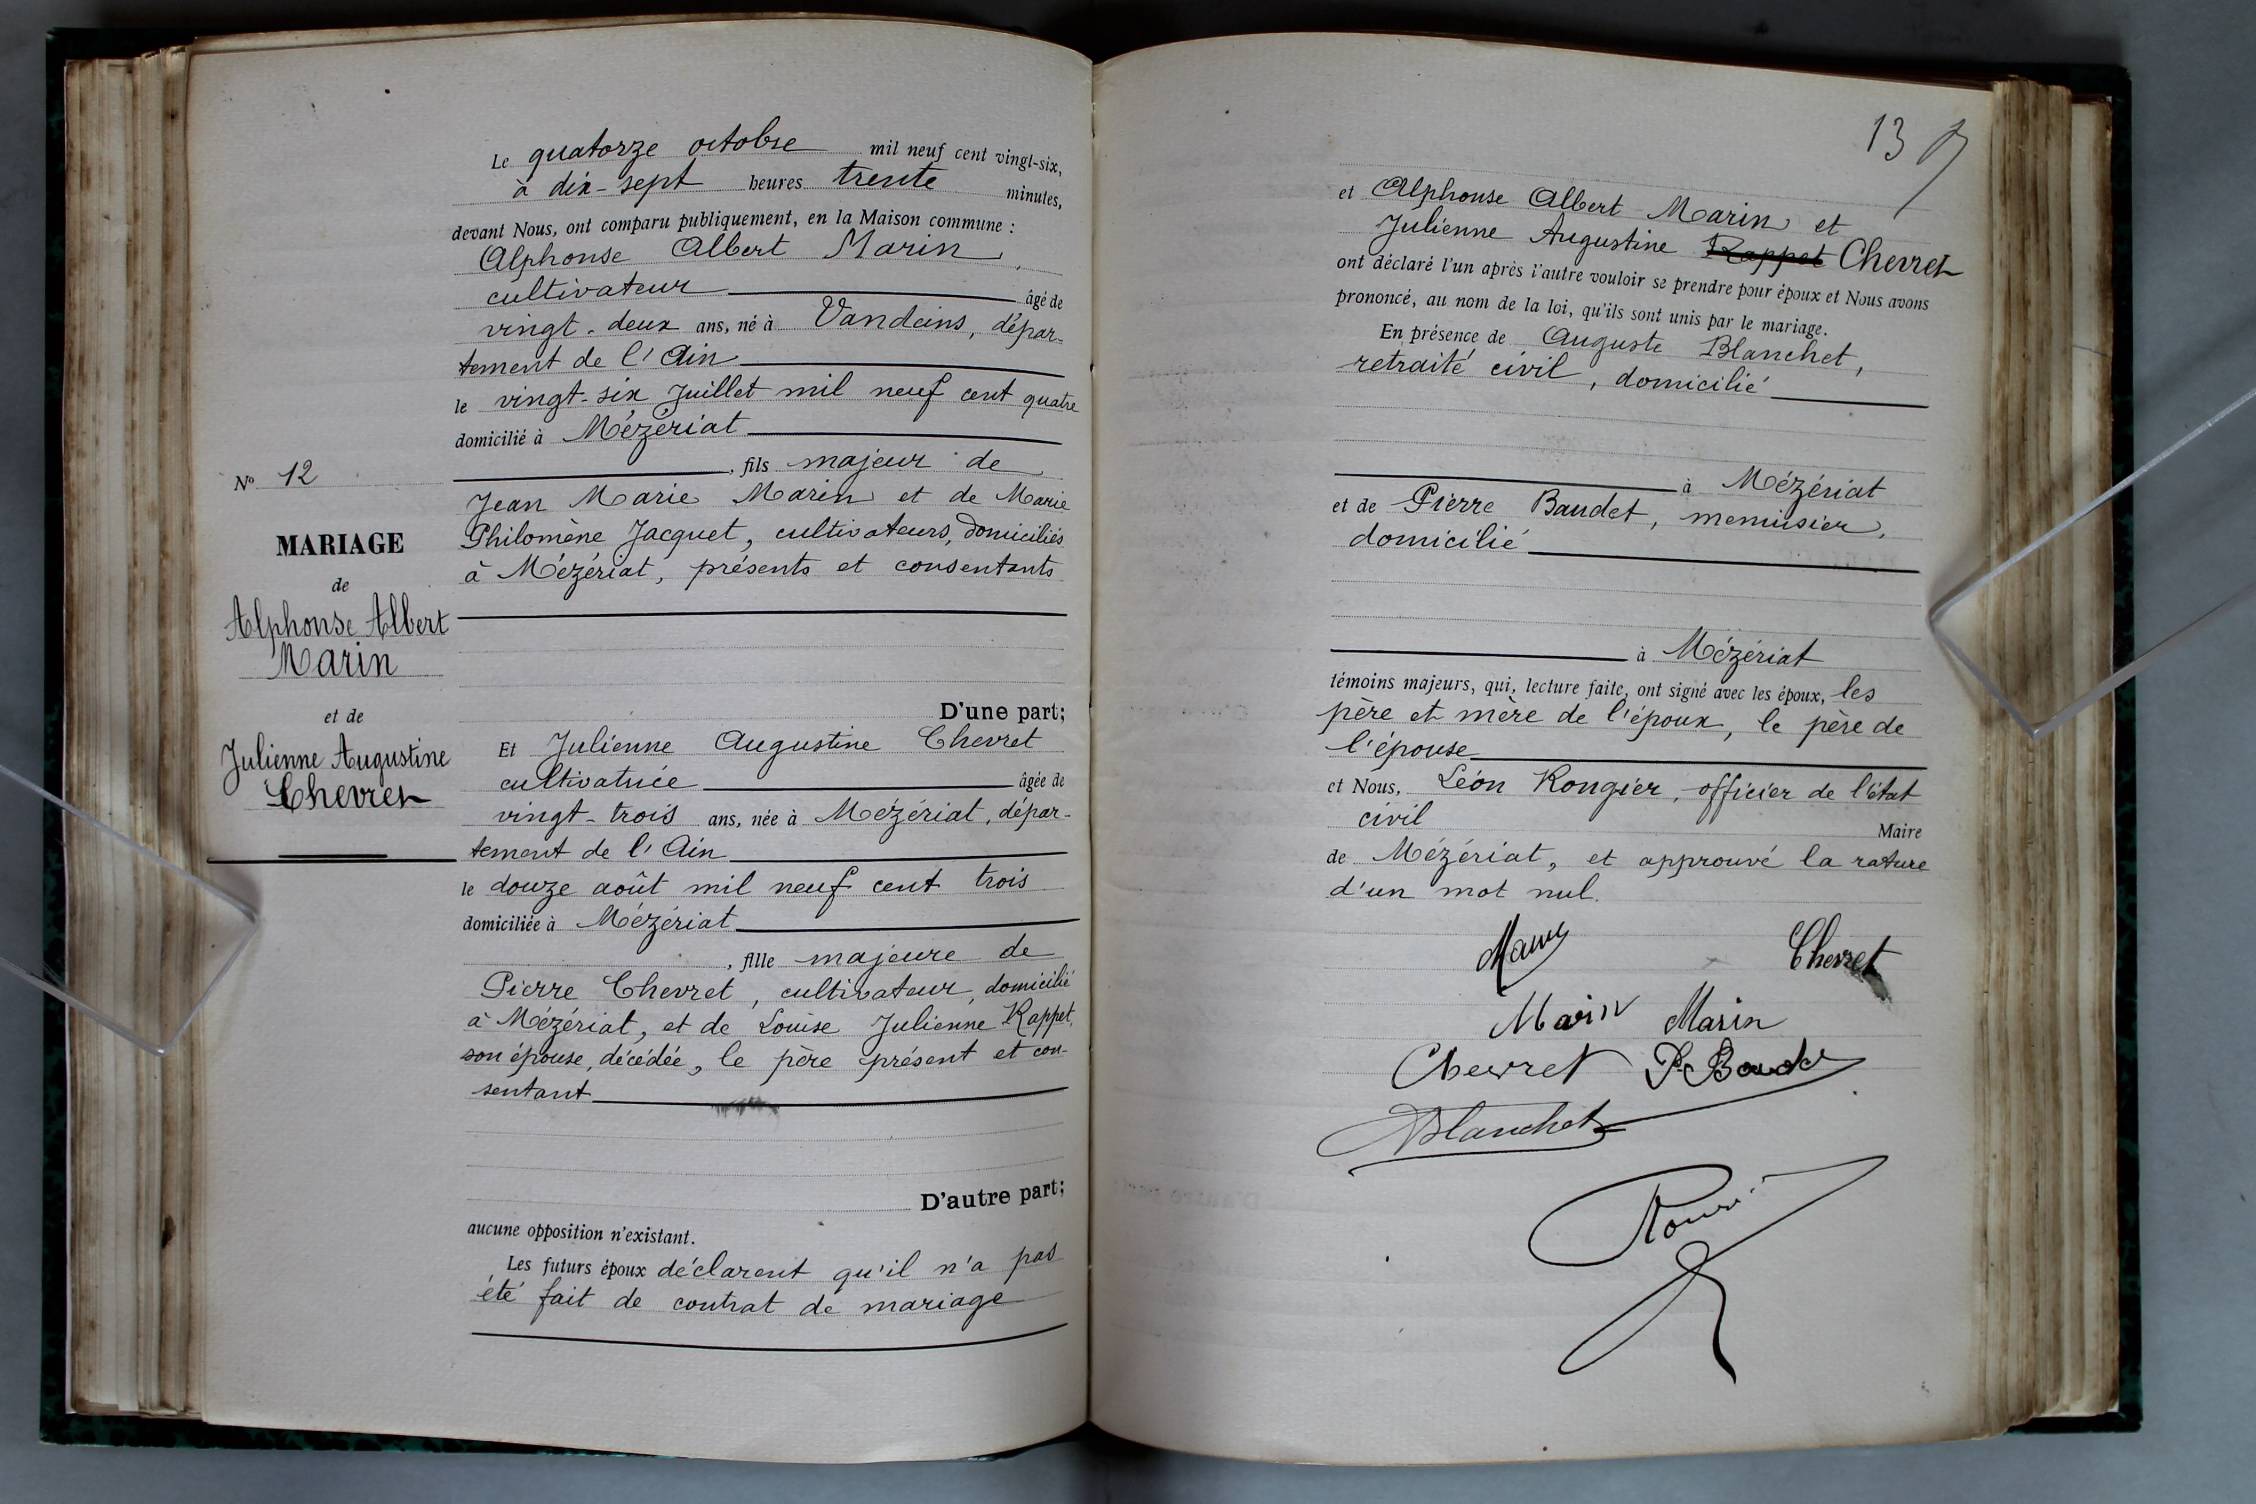 Le quatorze octobre mil neuf cent vingt-six,
à dix-sept heures trente minutes,
devant Nous, ont comparu publiquement, en la Maison commune :
Alphonse Albert Marin,
cultivateur âgé de
vingt-deux ans, né à Vandeins, dépar-
tement de l'Ain
le vingt-six Juillet mil neuf cent quatre
domicilié à Mézériat
, fils majeur de
Jean Marie Marin et de Marie
Philomène Jacquet, cultivateurs, domiciliés
à Mézériat, présents et consentants
D'une part;
N° 12
MARIAGE
de
Alphonse Albert
Marin
et de
Julienne Augustine
Chevret
Et Julienne Augustine Chevret
cultivatrice âgée de
vingt-trois ans, née à Mézériat, dépar-
tement de l'Ain
le douze août mil neuf cent trois
domiciliée à Mézériat
, fille majeure de
Pierre Chevret, cultivateur, domicilié
à Mézériat, et de Louise Julienne Rappet,
son épouse, décédée, le père présent et con-
sentant
D'autre part;
aucune opposition n'existant.
Les futurs époux déclarent qu'il n'a pas
été fait de contrat de mariage
13
et Alphonse Albert Marin et
Julienne Augustine Rappet Chevret
ont déclaré l'un après l'autre vouloir se prendre pour époux et Nous avons
prononcé, au nom de la loi, qu'ils sont unis par le mariage.
En présence de Auguste Blanchet,
retraité civil, domicilié
à Mézériat
et de Pierre Baudet, menuisier,
domicilié
à Mézériat
témoins majeurs, qui, lecture faite, ont signé avec les époux, les
père et mère de l'époux, le père de
l'épouse
et Nous, Léon Rongier, officier de l'état
civil Maire
de Mézériat, et approuvé la rature
d'un mot nul.
Chevret
Marin Marin
Chevret P. Baudet
Blanchet